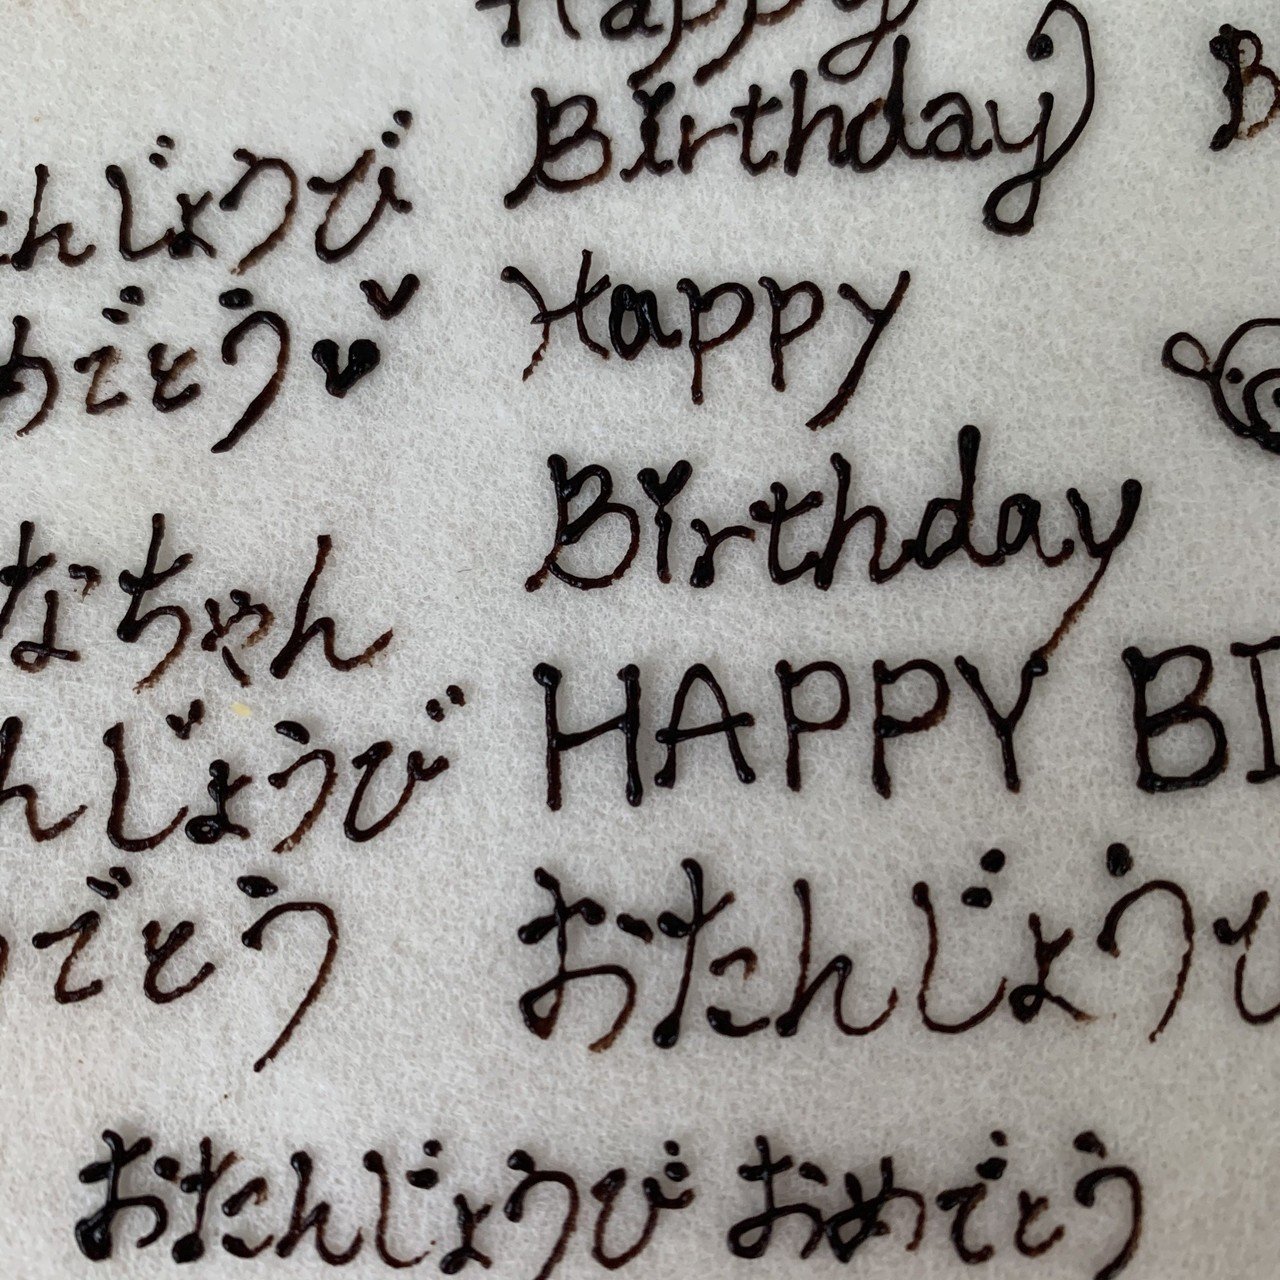 たんじょうび
めでとう
なちゃん
んじょうび
めでとう
Happy
Birthday
Happy
Birthday
HAPPY BI
おたんじょうび
おたんじょうび おめでとう
B